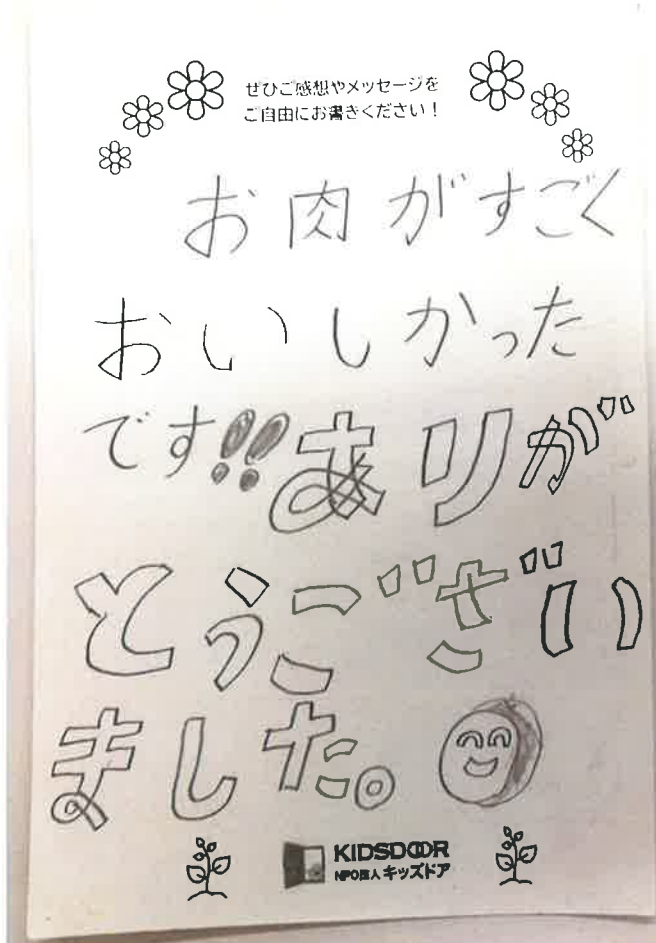 ぜひご感想やメッセージを
ご自由にお書きください！
お肉がすごく
おいしかった
です!!ありが
とうござい
ました。
KIDSDOOR
NPO法人キッズドア